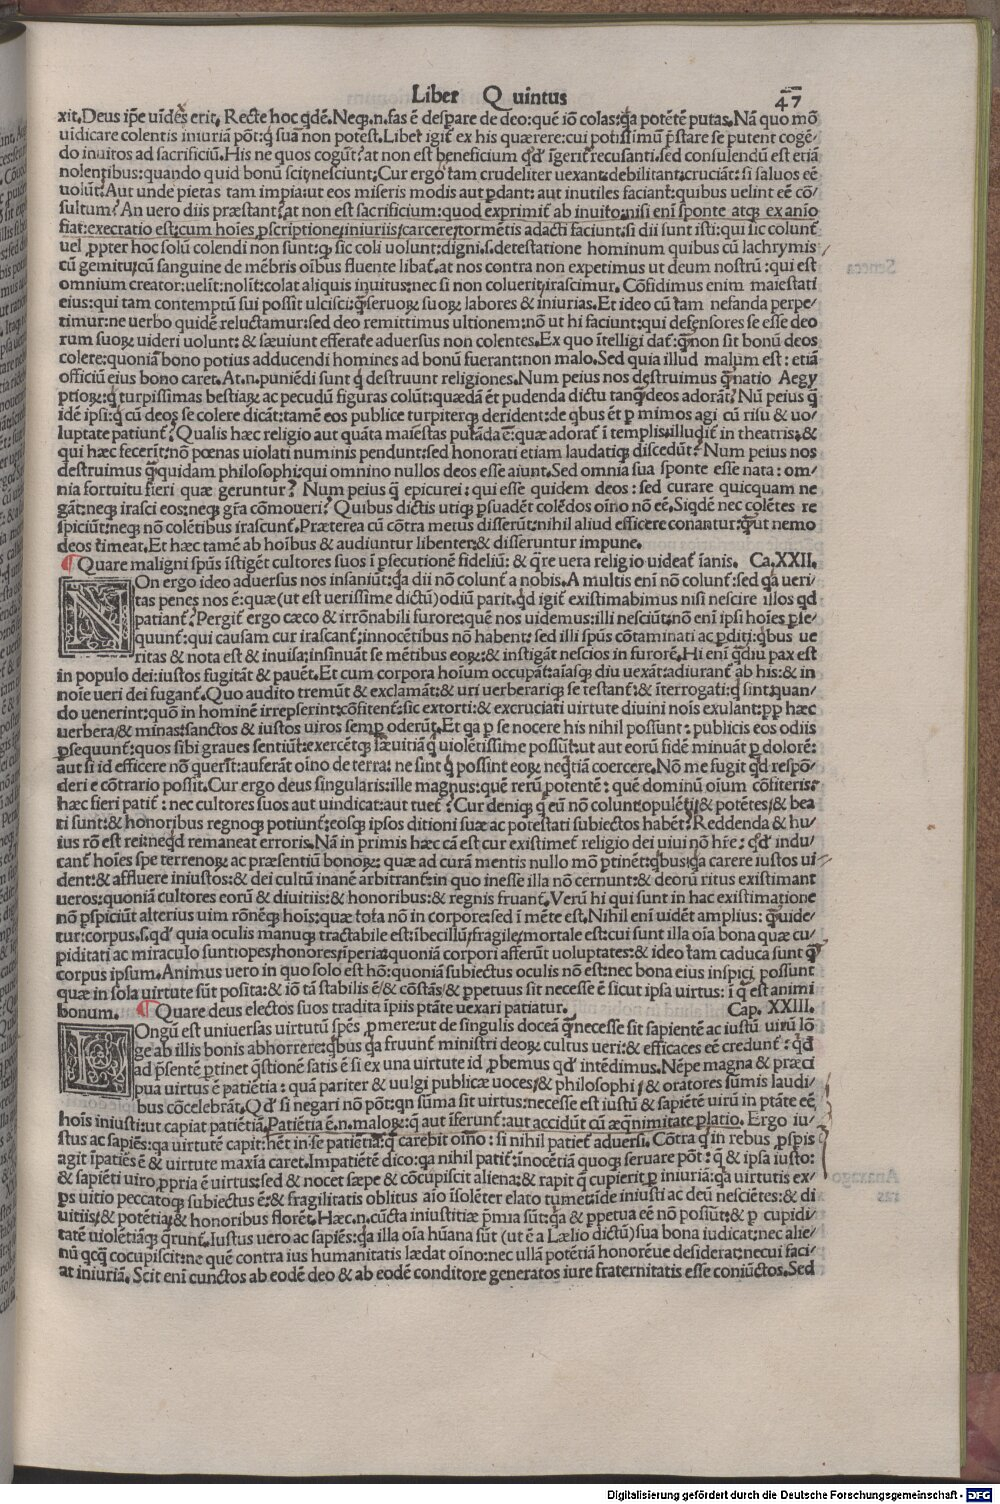 Liber Quintus
47
xit. Deus ip̄e uidēs erit. Recte hoc qdē. Neq;.n.fas ē despare de deo: quē iō colas: qa potētē putas. Nā quo mō
uidicare colentis iniuriā pōt: q suā non potest. Libet igit̄ ex his quærere: cui potissimū p̄stare se putent cogē/
do inuitos ad sacrificiū. His ne quos cogūt? at non est beneficium qđ īgerit̄ recusanti. sed consulendū est etiā
nolentibus: quando quid bonū scit, nesciunt: Cur ergo tam crudeliter uexant: debilitant: cruciāt: si saluos eē
uolūt? Aut unde pietas tam impia: ut eos miseris modis aut pdant: aut inutiles faciant: quibus uelint eē cō/
sultum? An uero diis præstant? at non est sacrificium: quod exprimit̄ ab inuito: nisi enī sponte atq; ex anīo
fiat: execratio est: cum hoīes pscriptione/iniuriis/carcere/tormētis adacti faciunt: si dii sunt isti: qui sic colunt̄
uel ppter hoc solū colendi non sunt: q; sic coli uolunt: digni.s. detestatione hominum quibus cū lachrymis/
cū gemitu: cū sanguine de mēbris oībus fluente libat̄. at nos contra non expetimus ut deum nostrū: qui est
omnium creator: uelit: nolit: colat aliquis inuitus: nec si non coluerit, irascimur. Cōfidimus enim maiestati
eius: qui tam contemptū sui possit ulcisci: q̄ seruoꝝ suoꝝ labores & iniurias. Et ideo cū tam nefanda perpe/
timur: ne uerbo quidē reluctamur: sed deo remittimus ultionem: nō ut hi faciunt: qui defensores se esse deo
rum suoꝝ uideri uolunt: & sæuiunt efferate aduersus non colentes. Ex quo ītelligi dat̄: q̄ non sit bonū deos
colere: quoniā bono potius adducendi homines ad bonū fuerant: non malo. Sed quia illud malum est: etiā
officiū eius bono caret. At.n. puniēdi sunt q destruunt religiones. Num peius nos destruimus q̄ natio Aegy
ptioꝝ: q turpissimas bestiaꝝ ac pecudū figuras colūt: quædā ēt pudenda dictu tanq̄ deos adorāt? Nū peius q̄
idē ipsi: q cū deos se colere dicāt: tamē eos publice turpiterq; derident: de qbus ēt p mimos agi cū risu & uo/
luptate patiunt̄? Qualis hæc religio aut quāta maiestas putāda ē: quæ adorat̄ ī templis: illudit̄ in theatris: &
qui hæc fecerīt: nō pœnas uiolati numinis pendunt: sed honorati etiam laudatiq; discedūt? Num peius nos
destruimus q̄ quidam philosophi: qui omnino nullos deos esse aiunt. Sed omnia sua sponte esse nata: om/
nia fortuitu fieri quæ geruntur? Num peius q̄ epicurei: qui esse quidem deos: sed curare quicquam ne
gāt: neq; irasci eos: neq; gr̄a cōmoueri? Quibus dictis utiq; psuadēt colēdos oīno nō eē. Siqdē nec colētes re
spiciūt: neq; nō colētibus irascunt̄. Præterea cū cōtra metus disserūt: nihil aliud efficere conantur: q̄ ut nemo
deos timeat. Et hæc tamē ab hoībus & audiuntur libenter: & disseruntur impune.
¶ Quare maligni spūs istigēt cultores suos ī psecutionē fideliū: & qre uera religio uideat̄ īanis. Ca. XXII.
NOn ergo ideo aduersus nos insaniūt: qa dii nō colunt̄ a nobis. A multis enī nō colunt̄: sed qa ueri/
tas penes nos ē: quæ (ut est uerissime dictū) odiū parit. qd igit̄ existimabimus nisi nescire illos qd
patiant̄? Pergit̄ ergo cæco & irrōnabili furore: quē nos uidemus: illi nesciūt: nō enī ipsi hoīes pse/
quunt̄: qui causam cur irascant̄: innocētibus nō habent: sed illi spūs cōtaminati ac pditi: qbus ue
ritas & nota est & inuisa: insinuāt se mētibus eoꝝ: & instigāt nescios in furorē. Hi enī qdiu pax est
in populo dei: iustos fugitāt & pauēt. Et cum corpora hoīum occupāt: aīasq; diu uexāt: adiurant̄ ab his: & in
noīe ueri dei fugant̄. Quo audito tremūt & exclamāt: & uri uerberariq; se testant̄: & īterrogati: q sint: quan/
do uenerint: quō in hominē irrepserint: cōfitent̄: sic extorti: & excruciati uirtute diuini noīs exulant: pp hæc
uerbera/& minas: sanctos & iustos uiros semp oderūt. Et qa p se nocere his nihil possunt: publicis eos odiis
psequunt̄: quos sibi graues sentiūt: exercētq; sæuitiā q uiolētissime possūt: ut aut eorū fidē minuāt p dolorē:
aut si id efficere nō querīt: auferāt oīno de terra: ne sint q possint eoꝝ neqtiā coercere. Nō me fugit qd respō/
deri e cōtrario possit. Cur ergo deus singularis: ille magnus: quē rerū potentē: quē dominū oīum cōfiteris:
hæc fieri patit̄: nec cultores suos aut uindicat: aut tuet̄? Cur deniq; q eū nō colunt: opulēti/& potētes/& bea
ti sunt: & honoribus regnoq; potiunt̄: eosq; ipsos ditioni suæ ac potestati subiectos habēt? Reddenda & hu/
ius rō est rei: neqd remaneat erroris. Nā in primis hæc cā est cur existimet̄ religio dei uiui nō hr̄e: qđ indu/
cant̄ hoīes spe terrenoꝝ ac præsentiū bonoꝝ: quæ ad curā mentis nullo mō ptinēt: qbus qa carere iustos ui/
dent: & affluere iniustos: & dei cultū inanē arbitrant̄: in quo inesse illa nō cernunt: & deorū ritus existimant
ueros: quoniā cultores eorū & diuitiis: & honoribus: & regnis fruant̄. Verū hi qui sunt in hac existimatione
nō pspiciūt alterius uim rōnēq; hoīs: quæ tota nō in corpore: sed ī mēte est. Nihil enī uidēt amplius: q̄ uide/
tur: corpus.s. qđ quia oculis manuq; tractabile est: ībecillū/fragile/mortale est: cui sunt illa oīa bona quæ cu/
piditati ac miraculo sunt: opes/honores/īperia: quoniā corpori afferūt uoluptates: & ideo tam caduca sunt q̄
corpus ipsum. Animus uero in quo solo est hō: quoniā subiectus oculis nō est: nec bona eius inspici possunt
quæ in sola uirtute sūt posita: & iō tā stabilis ē/& cōstās/& ppetuus sit necesse ē sicut ipsa uirtus: ī q est animi
bonum. ¶ Quare deus electos suos tradita īpiis ptāte uexari patiatur. Cap. XXIII.
LOngū est uniuersas uirtutū spēs pmere: ut de singulis doceā q̄ necesse sit sapientē ac iustū uirū lō
ge ab illis bonis abhorrere: qbus qa fruunt̄ ministri deoꝝ cultus ueri: & efficaces eē credunt̄: qđ
ad p̄sentē ptinet qstionē satis ē si ex una uirtute id pbemus qđ intēdimus. Nēpe magna & præci
pua uirtus ē patiētia: quā pariter & uulgi publicæ uoces/& philosophi/& oratores sūmis laudi/
bus cōcelebrāt. Qđ si negari nō pōt: qn sūma sit uirtus: necesse est iustū & sapiētē uirū in ptāte eē
hoīs iniusti: ut capiat patiētiā. Patiētia ē.n. maloꝝ: q̄ aut īferunt̄: aut accidūt cū æqnimitate platio. Ergo iu/
stus ac sapiēs: qa uirtutē capit: hēt in se patiētiā: q̄ carebit oīno: si nihil patiet̄ aduersi. Cōtra q in rebus pspis
agit īpatiēs ē & uirtute maxīa caret. Impatiētē dico: qa nihil patit̄: īnocētiā quoq; seruare pōt: q̄ & ipsa iusto:
& sapiēti uiro ppria ē uirtus: sed & nocet sæpe & cōcupiscit aliena: & rapit q cupierit p iniuriā: qa uirtutis ex/
ps uitio peccatoq; subiectus ē: & fragilitatis oblitus aīo īsolēter elato tumet: īde iniusti ac deū nesciētes: & di
uitiis/& potētia/& honoribus florēt. Hæc.n. cūcta iniustitiæ p̄mia sūt: qa & ppetua eē nō possūt: & p cupidi/
tatē uiolētiāq; qrunt̄. Iustus uero ac sapiēs: qa illa oīa hūana sūt (ut ē a Lælio dictū) sua bona iudicat: nec alie/
nū qcq̄ cōcupiscit: ne quē contra ius humanitatis lædat oīno: nec ullā potētiā honorēue desiderat: necui faci/
at iniuriā. Scit enī cunctos ab eodē deo & ab eodē conditore generatos iure fraternitatis esse coniūctos. Sed
Digitalisierung gefördert durch die Deutsche Forschungsgemeinschaft - DFG